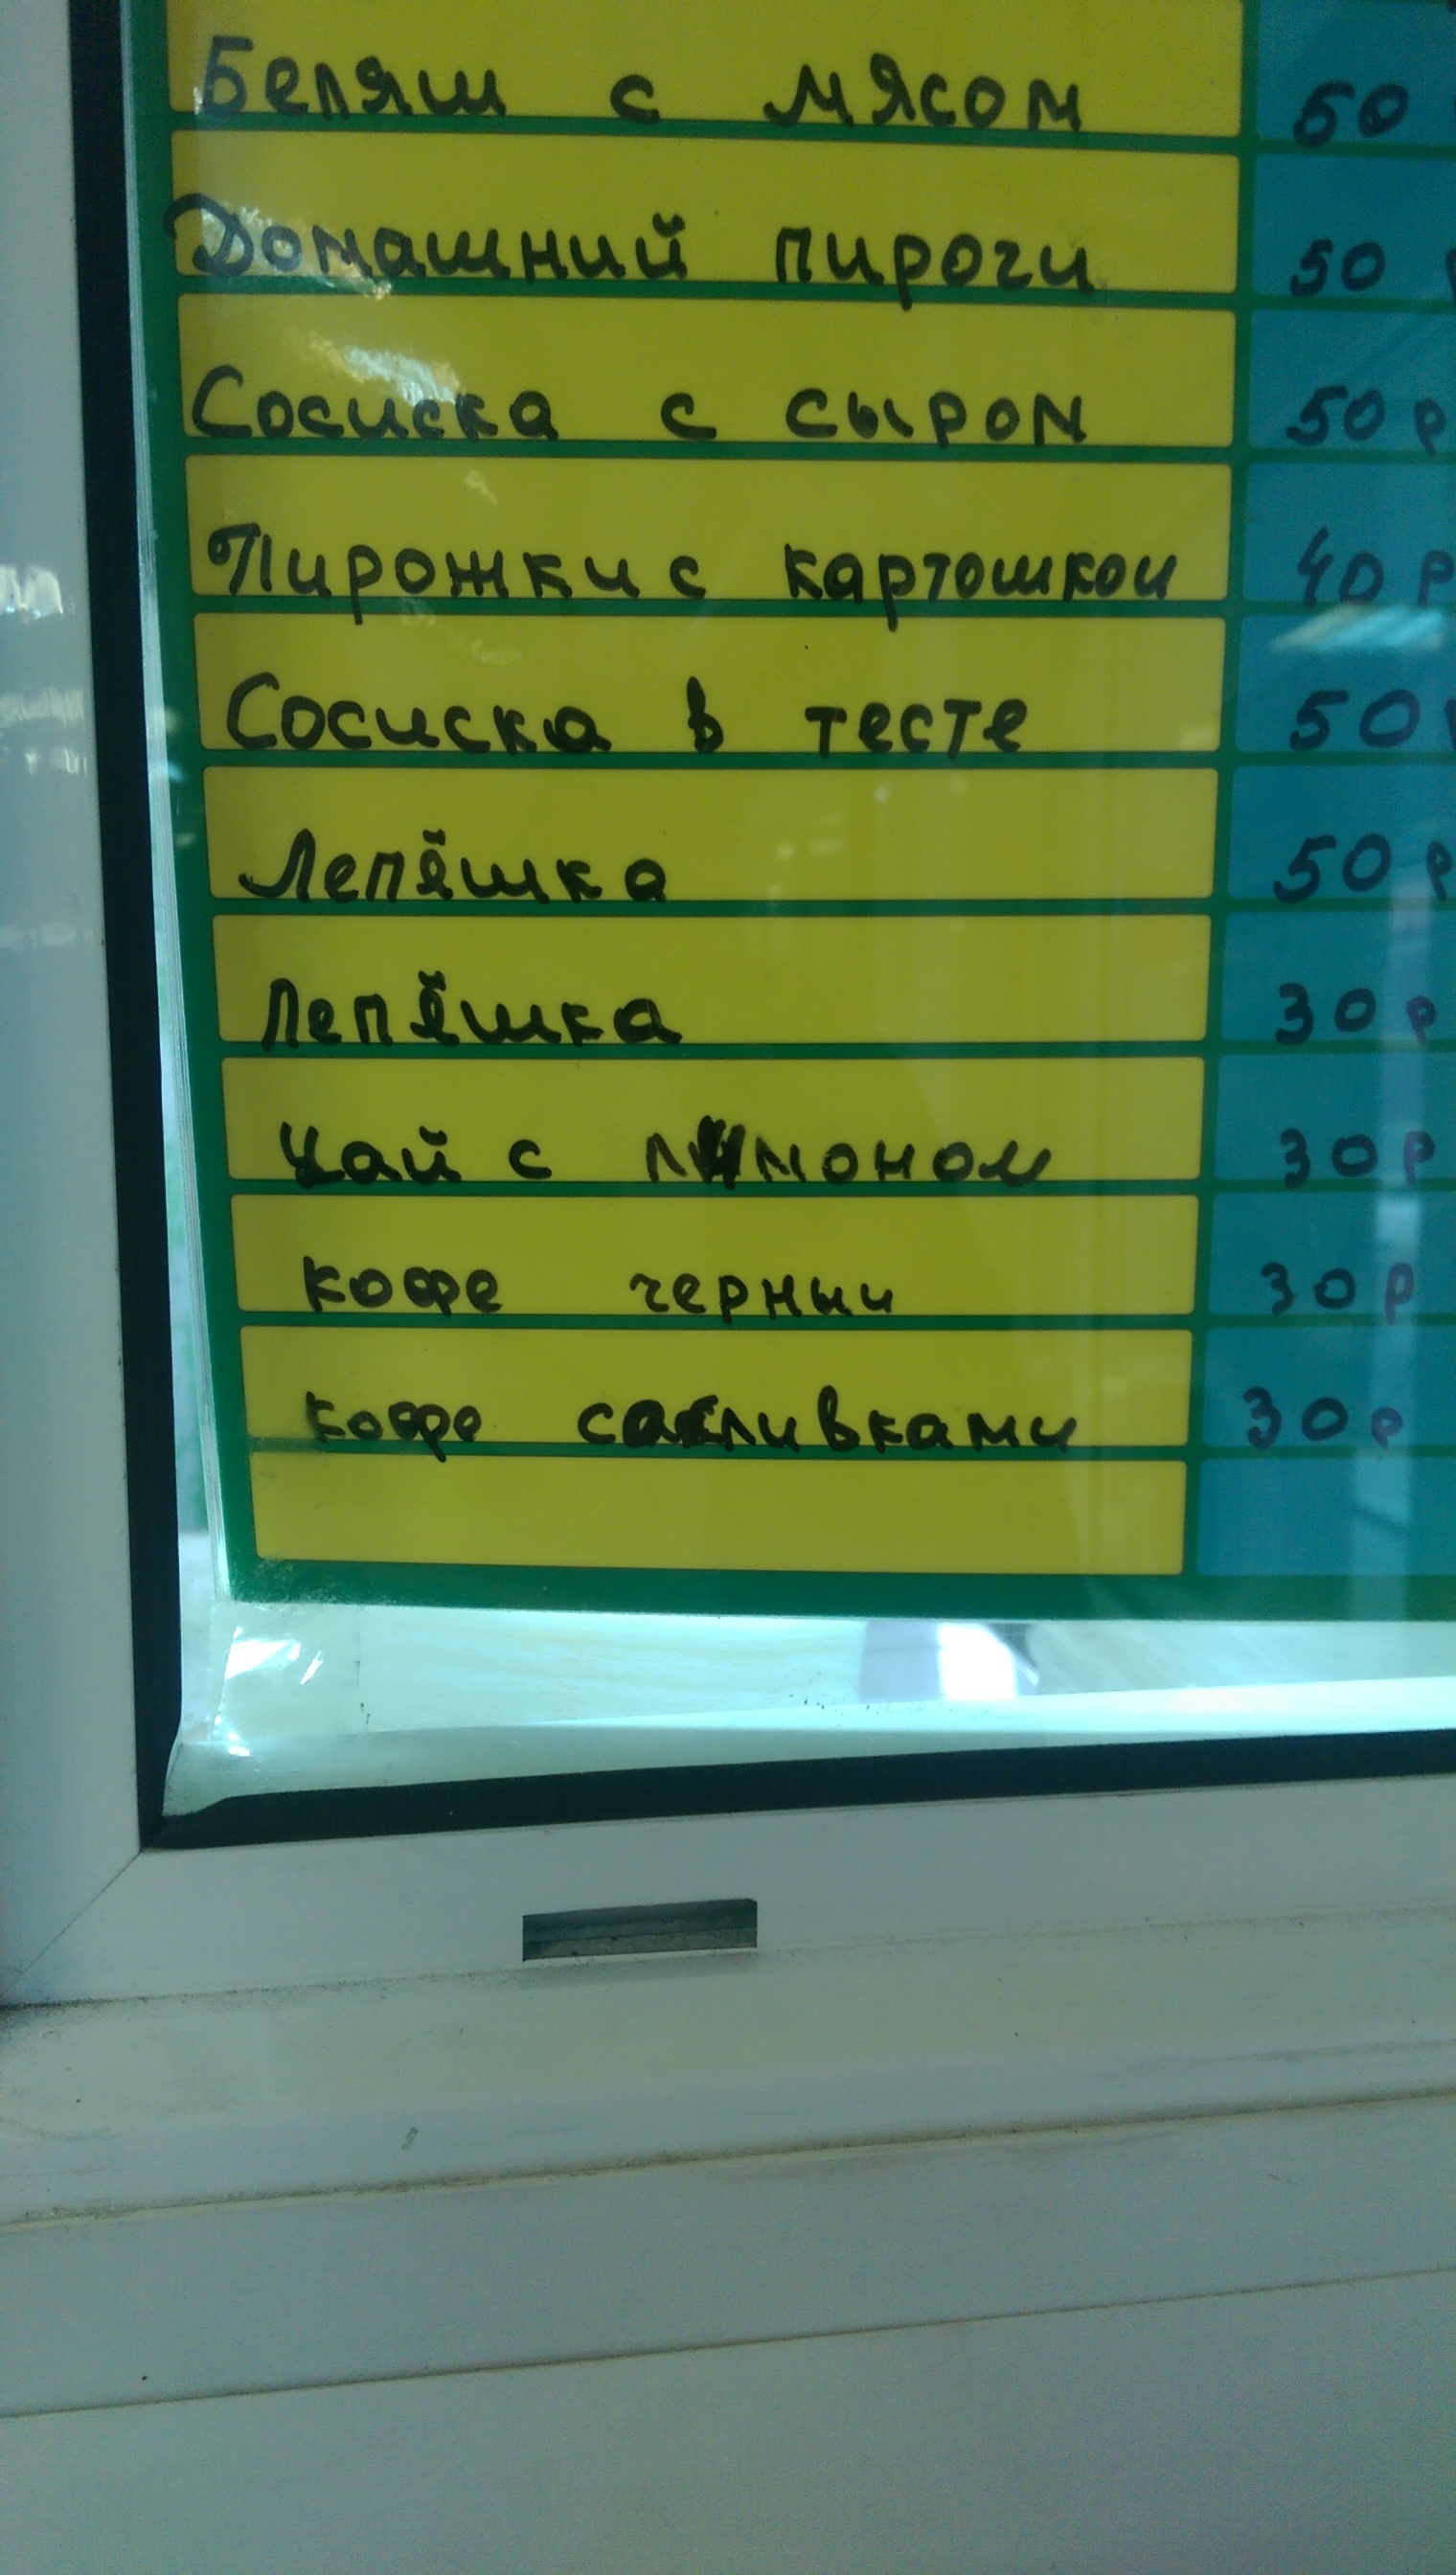 Беляш с мясом 50
Домашний пироги 50
Сосиска с сыром 50р
Пирожки с картошкои 40р
Сосиска в тесте 50
Лепёшка 50р
Лепёшка 30р
Чай с лимоном 30р
кофе черныи 30р
кофе сливками 30р